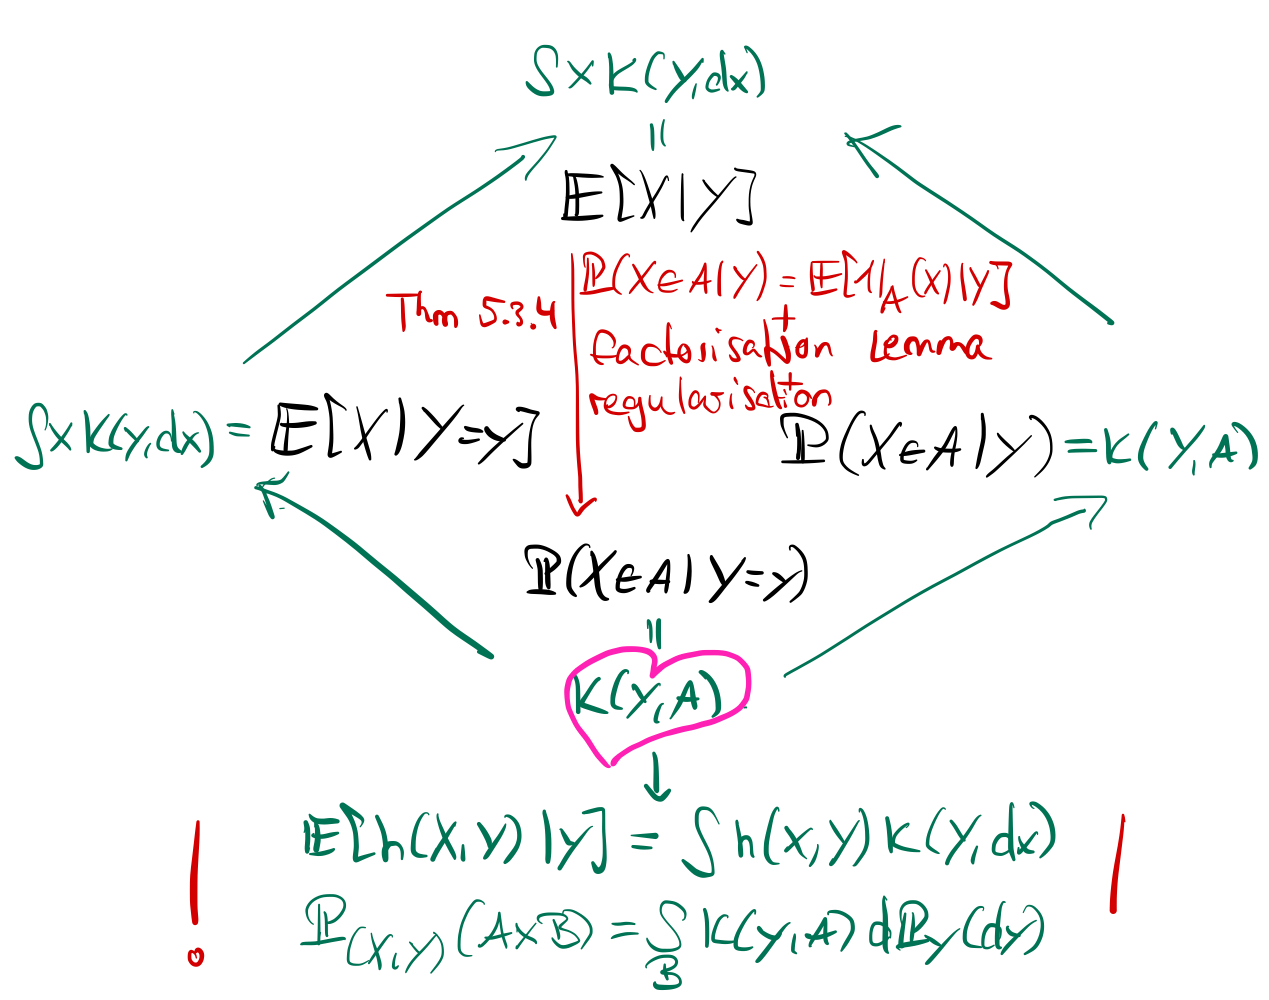 ∫ x K(Y, dx)
=
𝔼[X | Y]
Thm 5.3.4
ℙ(X ∈ A | Y) = 𝔼[𝟙_A(X) | Y]
+
factorisation Lemma
+
regularisation
∫ x K(y, dx) = 𝔼[X | Y = y]
ℙ(X ∈ A | Y) = K(Y, A)
ℙ(X ∈ A | Y = y)
=
K(y, A)
! 𝔼[h(X, Y) | Y] = ∫ h(x, Y) K(Y, dx) !
ℙ_(X,Y) (A × B) = ∫_B K(y, A) dℙ_Y(dy)